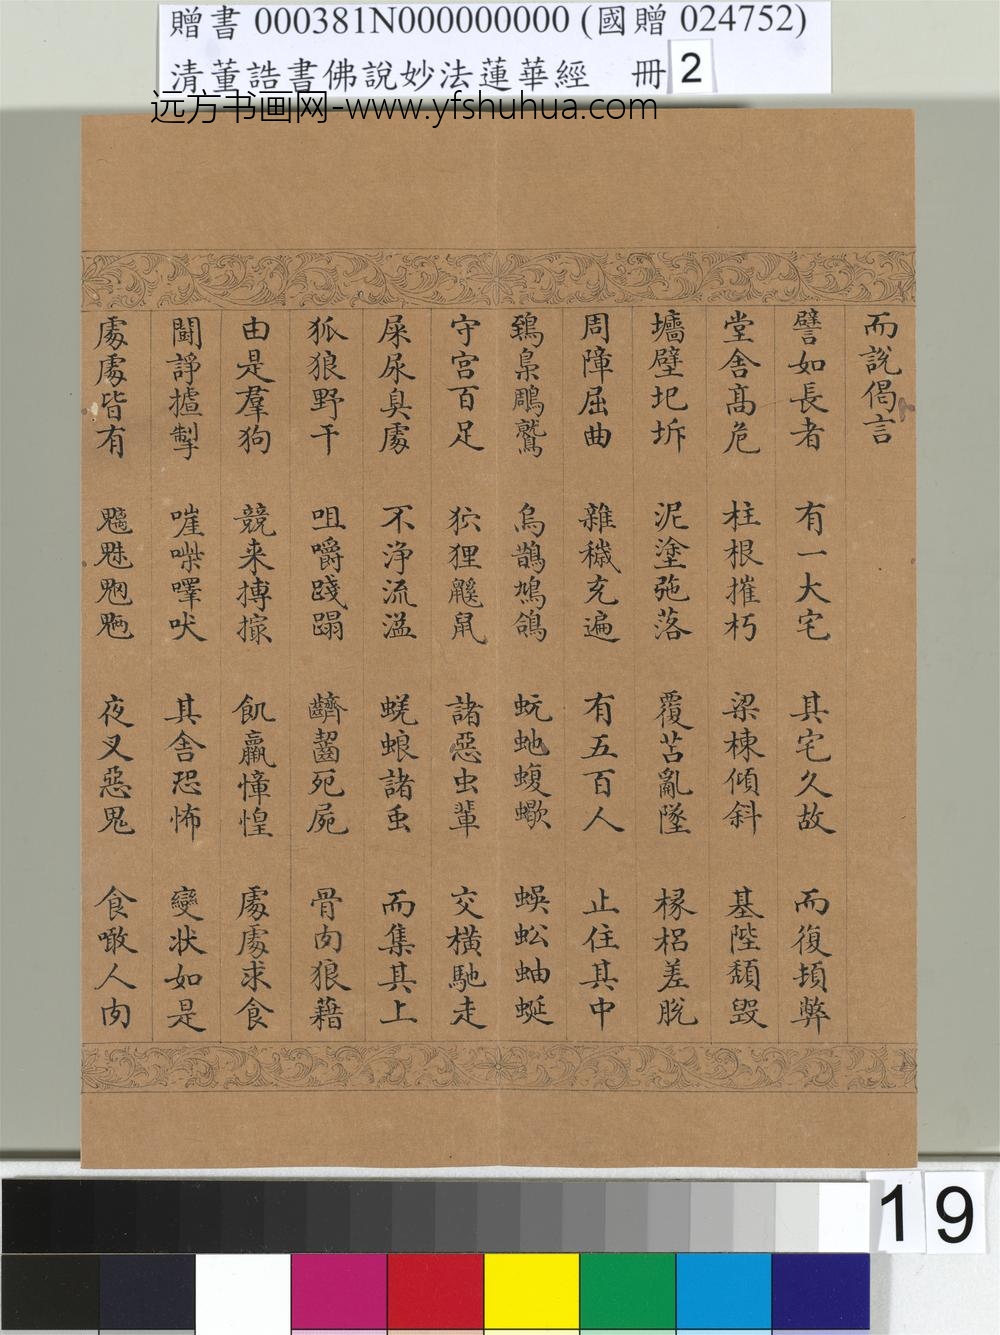 贈書 000381N000000000 (國贈 024752)
清董誥書佛說妙法蓮華經 冊 2
远方书画网-www.yfshuhua.com
而說偈言
譬如長者 有一大宅 其宅久故 而復頓弊
堂舍髙危 柱根摧朽 梁棟傾斜 基陛頹毀
墻壁圮坼 泥塗弛落 覆苫亂墜 椽梠差脫
周障屈曲 雜穢充遍 有五百人 止住其中
鵄梟鵰鷲 烏鵲鳩鴿 蚖虵蝮蠍 蜈蚣蚰蜒
守宮百足 狖狸鼷鼠 諸惡虫輩 交橫馳走
屎尿臭處 不淨流溢 蜣蜋諸虫 而集其上
狐狼野干 咀嚼踐蹋 嚌齧死屍 骨肉狼藉
由是羣狗 競来搏撮 飢羸慞惶 處處求食
鬬諍摣掣 嘊喍嘷吠 其舍恐怖 變状如是
處處皆有 魑魅魍魎 夜叉惡鬼 食噉人肉
19